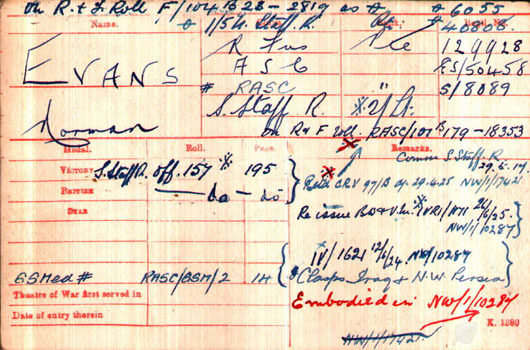 on R. & F. Roll F/104 B28 - 2819 as 6055
Name. 1/5th Staff. R. 40808.
EVANS R Fus Pte 129928
A S C ES/50458
# RASC S/8089
Norman S. Staff R. 2/Lt.
on R & F Roll. RASC/101 B 179 - 18353
Medal. Roll. Page. Remarks.
Comm S Staff. R
29.5.17.
VICTORY S. Staff R. Off. 157 195
BRITISH do do
STAR
Retd CRV 97/B 29.4.25 NW/1/17421
Re issue B & V 26/6/25.
NW/1/10287
IV/1621 12/6/24 NW/10287
Clasps Iraq & N.W. Persia
GSMed # RASC/GSM/2 14
Theatre of War first served in
Embodied in NW/1/10287
Date of entry therein
K. 1380
NW/1/17421.